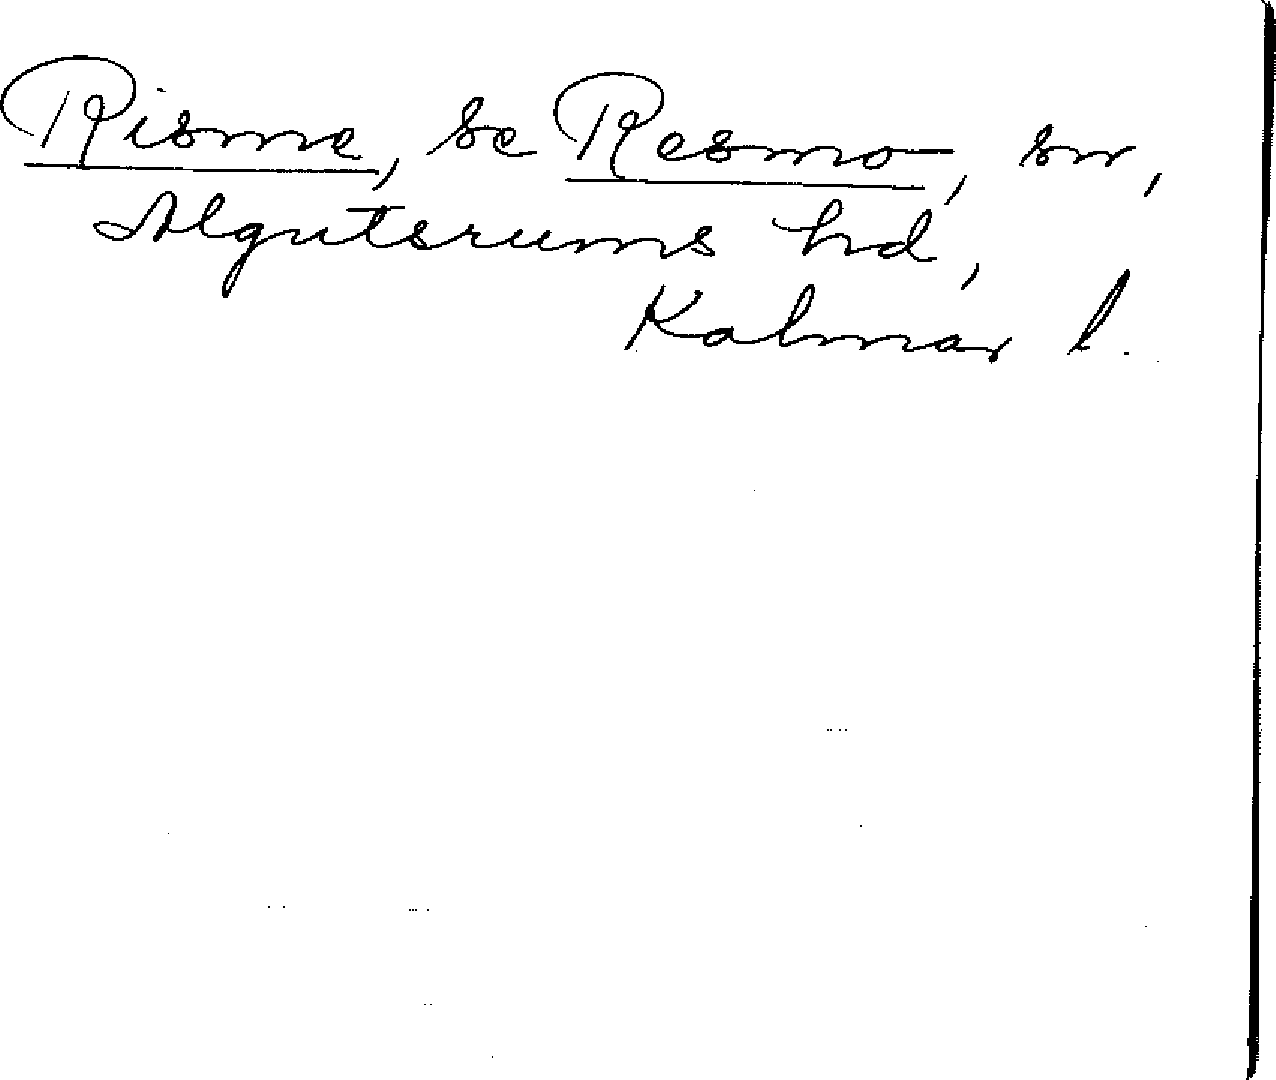 Risme, se Resmo, sn,
Algutsrums hd,
Kalmar l.